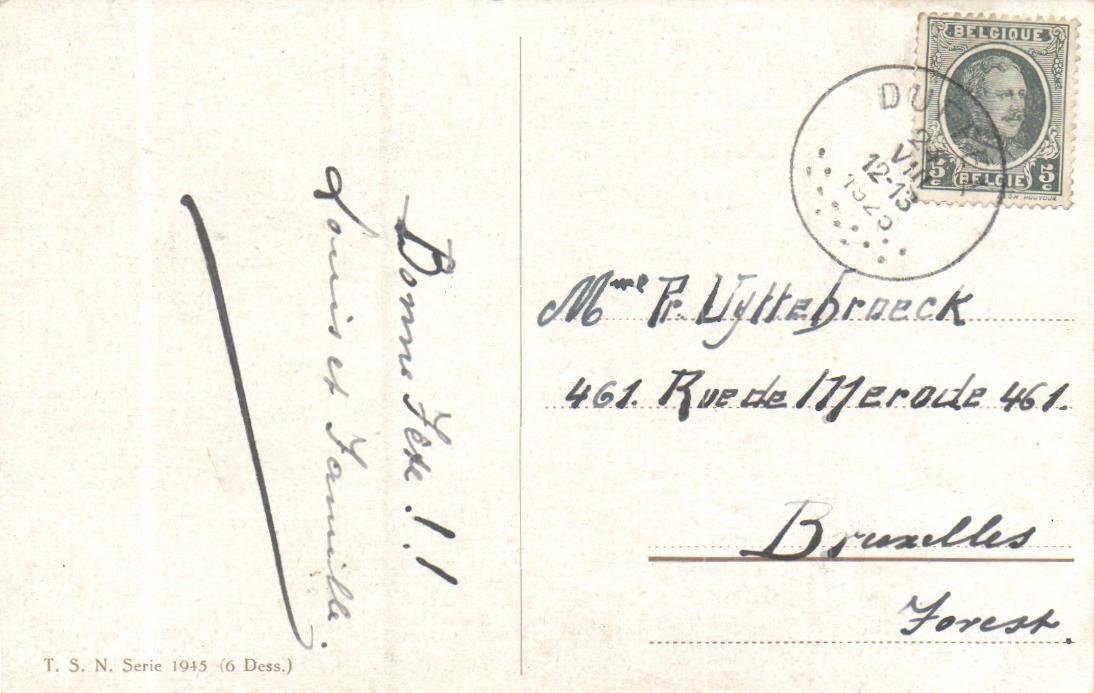 Bonne Fete !!
Louis et Famille.
T. S. N. Serie 1945 (6 Dess.)
BELGIQUE
5c BELGIE 5c
12-13
Mme Pr. Uyttebroeck
461. Rue de Merode 461.
Bruxelles
Forest.